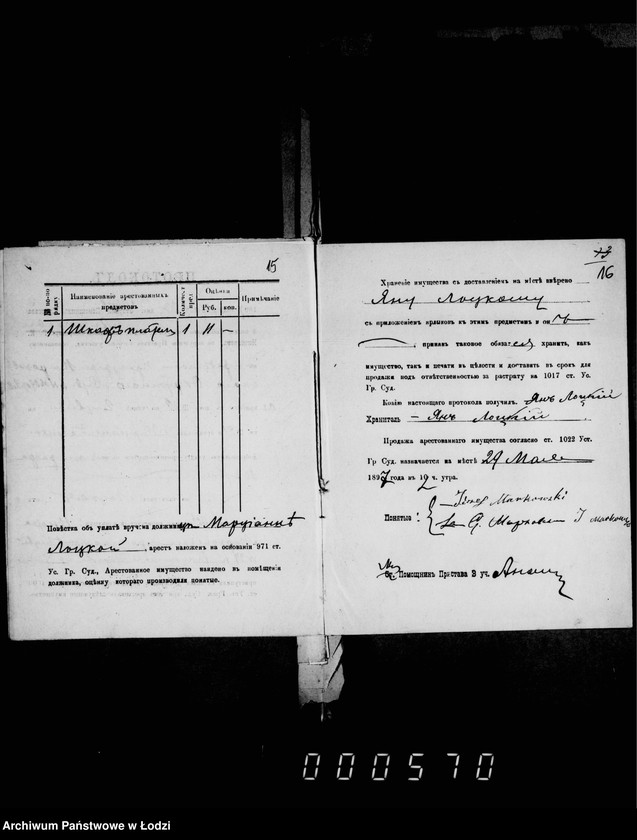 15
№ по-по рядку
Наименованіе арестованныхъ предметовъ
Количест. пред.
Оцѣнка
Руб. коп.
Примѣчаніе
1. Шкафъ 1 11 —
Повѣстка объ уплатѣ вручена должни Маріаннѣ
Лоцкой, арестъ наложенъ на основаніи 971 ст.
Ус. Гр. Суд., Арестованное имущество найдено въ помѣщеніи
должника, оцѣнку котораго производили понятые.
16
Храненіе имущества съ доставленіемъ на мѣстѣ ввѣрено
Яну Лоцкому
съ приложеніемъ ярлыковъ къ этимъ предметамъ и он
, принявъ таковое обязался хранить, какъ
имущество, такъ и печати въ цѣлости и доставить въ срокъ для
продажи подъ отвѣтственностью за растрату на 1017 ст. Ус.
Гр. Суд.
Копію настоящаго протокола получилъ. Янъ Лоцкій
Хранитель — Янъ Лоцкій
Продажа арестованнаго имущества согласно ст. 1022 Уст.
Гр Суд. назначается на мѣстѣ 29 Мая
1897 года въ 12 ч. утра.
Понятые: Markowski
Помощникъ Пристава 3 уч.
000570
Archiwum Państwowe w Łodzi